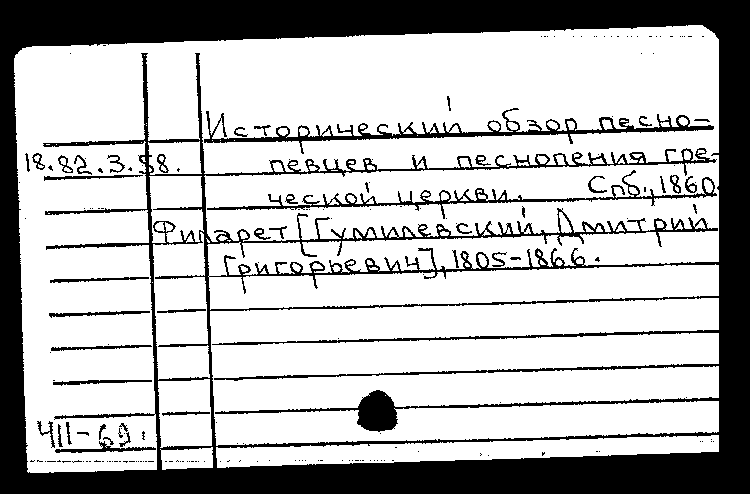 Исторический обзор песно-
18.82.3.58. певцев и песнопения гре-
ческой церкви. Спб., 1860.
Филарет [Гумилевский, Дмитрий
Григорьевич], 1805-1866.
411-69.